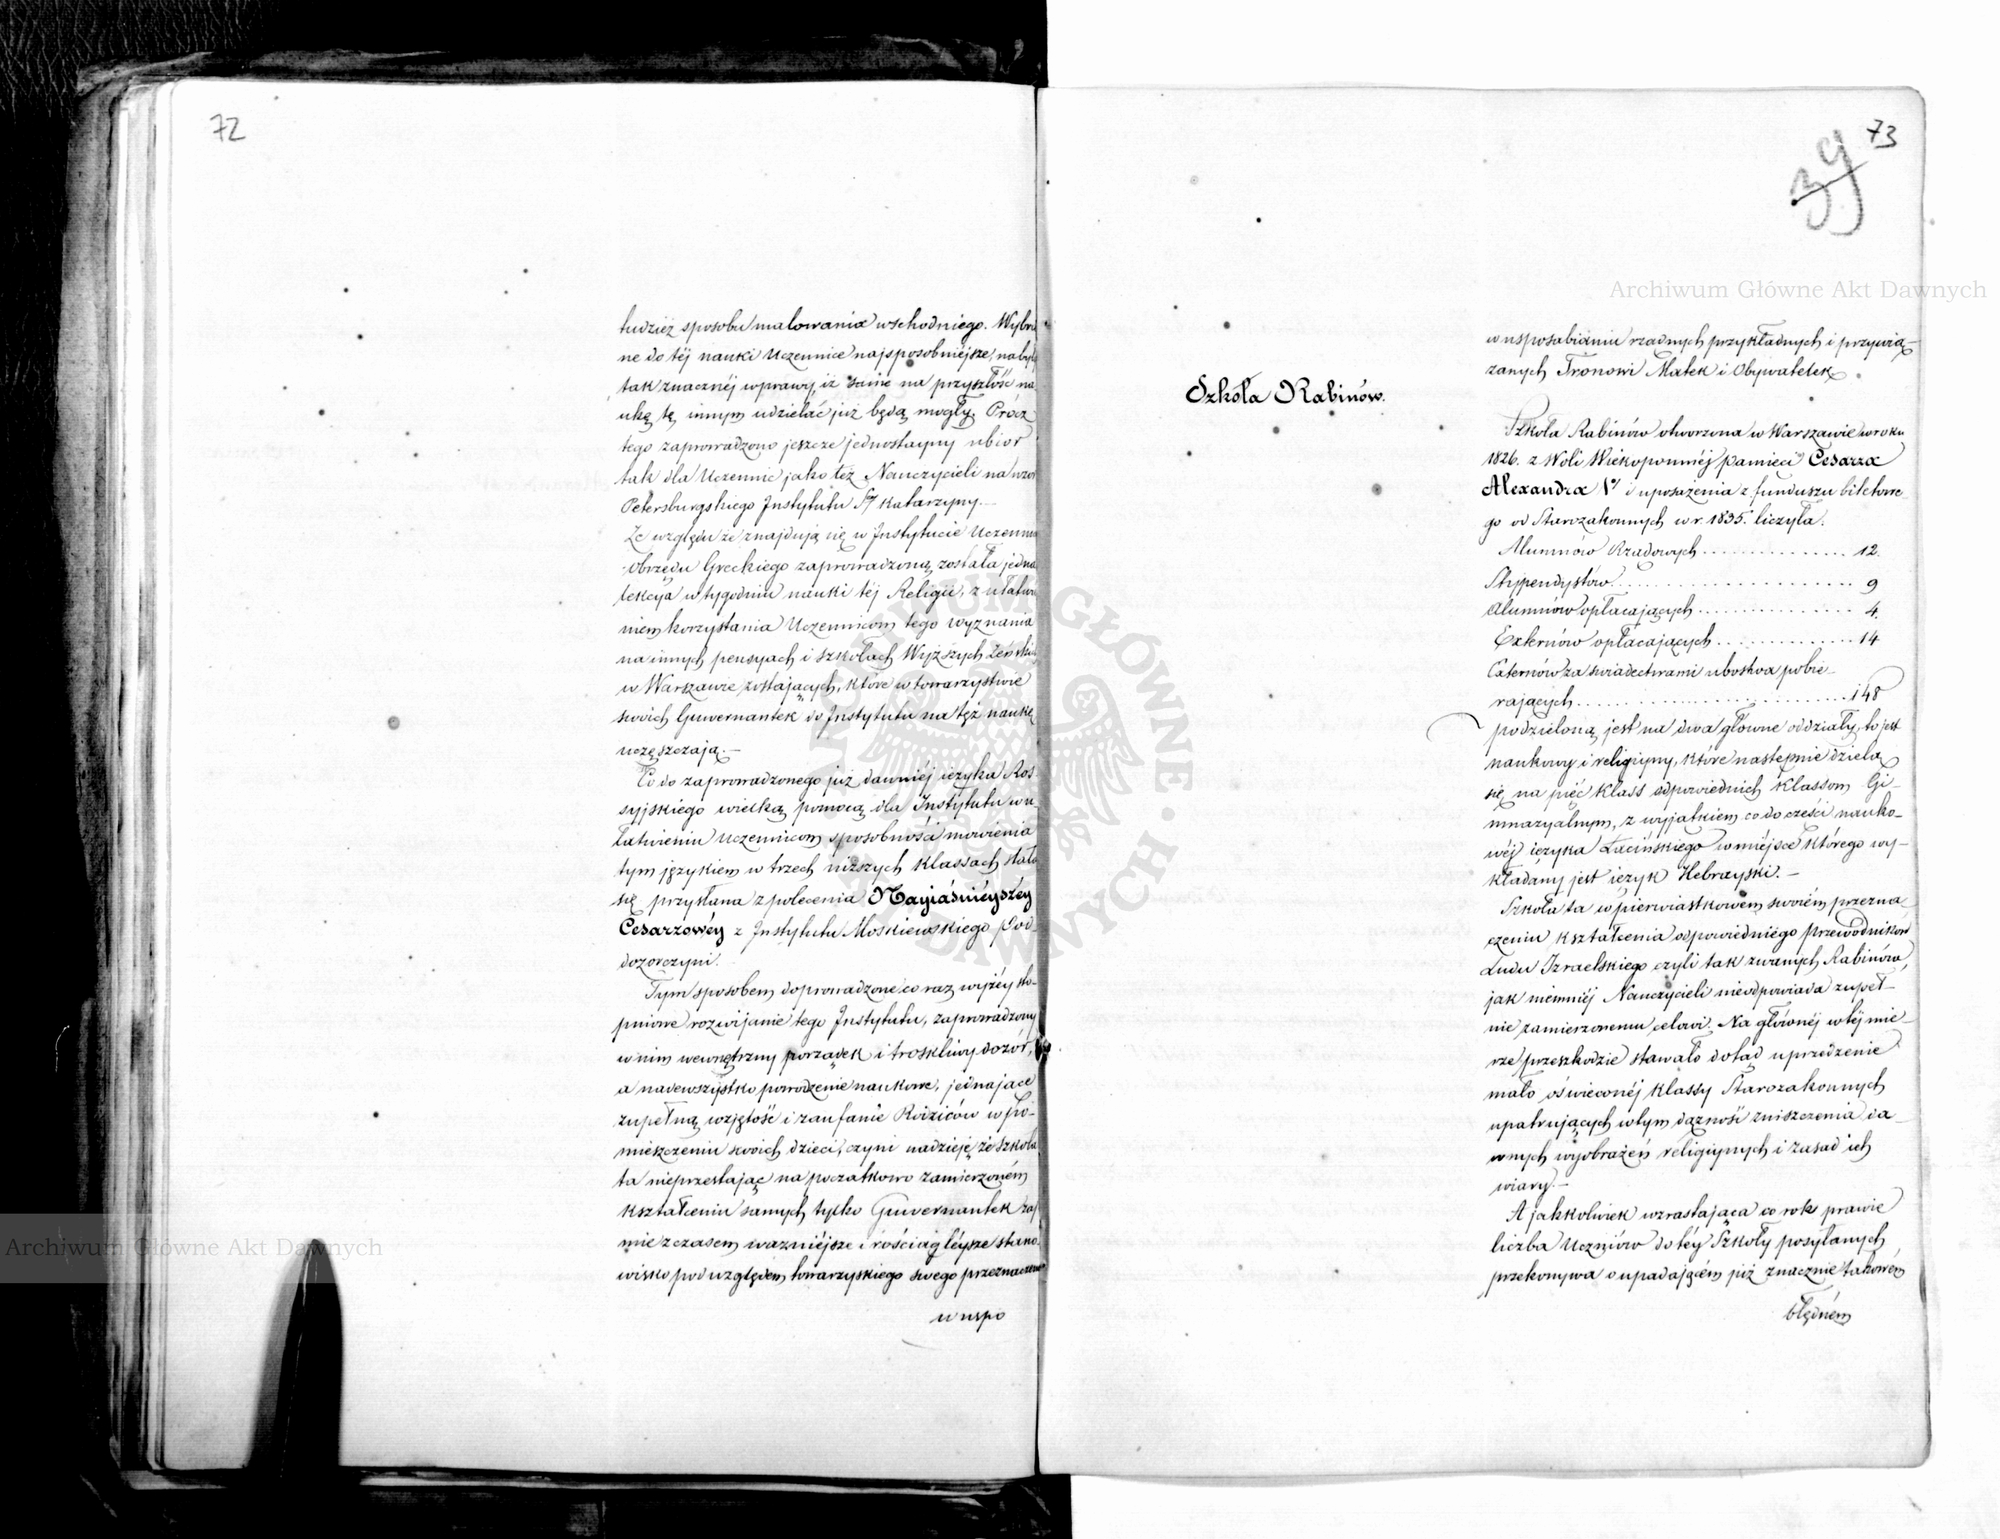 72
tudzież sposobu malowania wschodniego. Wybra
ne do téj nauki Uczennice najsposobniejsze, nabyły
tak znacznéj wprawy, iż same na przyszłość na
ukę tę innym udzielać już będą mogły. Prócz
tego zaprowadzono jeszcze jednostayny ubiór
tak dla Uczennic jako też Nauczycieli na wzór
Petersburgskiego Instytutu Stéj Katarzyny.—
Ze względu że znajdują się w Instytucie Uczennice
obrzędu Greckiego zaprowadzoną została jedna
lekcya w tygodniu nauki téj Religii, z ułatwie
niem korzystania Uczennicom tego wyznania
na innych pensyach i szkołach Wyższych Żeńskich
w Warszawie zostających, które w towarzystwie
swoich Guwernantek do Instytutu na też naukę
uczęszczają.—
Co do zaprowadzonego już dawniéj ięzyka Ros
syjskiego wielką pomocą dla Instytutu w u-
łatwieniu Uczennicom sposobności mówienia
tym językiem w trzech niższych klassach stała
się przysłana z polecenia Nayiaśnieyszey
Cesarzowéy z Instytutu Moskiewskiego Pod-
dozorczyni.
Tym sposobem doprowadzone co raz wyżéy sto-
pniowe rozwijanie tego Instytutu, zaprowadzony
w nim wewnętrzny porządek i troskliwy dozór,
a nadewszystko powodzenie naukowe, jednające
zupełną wziętość i zaufanie Rodziców w po-
mieszczeniu swoich dzieci, czyni nadzieję że Szkoła
ta nieprzestając na początkowo zamierzoném
kształceniu samych tylko Guwernantek zaj
mie z czasem ważniéjsze i rościągléysze stano-
wisko pod względem towarzyskiego swego przeznaczenia
w uspo
73
39
Archiwum Główne Akt Dawnych
w usposabianiu rządnych przykładnych i przywią-
zanych Tronowi Matek i Obywatelek.
Szkoła Rabinów.
Szkoła Rabinów otworzona w Warszawie w roku
1826. z Woli Wiekopomnéj pamięci Cesarza
Alexandra Igo i uposażenia z funduszu biletowe-
go od Starozakonnych w r. 1835. liczyła.
Alumnów Rządowych .............. 12.
Stypendystów ..................... 9
Alumnów opłacających ............. 4.
Externów opłacających ............. 14
Externów za świadectwami ubóstwa pobie-
rających ......................... 148
podzieloną jest na dwa główne oddziały, to jest
naukowy i religijny, które następnie dzielą
się na pięć klass odpowiednich klassom Gi-
mnazyalnym, z wyjątkiem co do części nauko-
wéj ięzyka Łacińskiego w miéjsce którego wy-
kładany jest ięzyk Hebrayski.—
Szkoła ta w pierwiastkowém swoiém przezna-
czeniu kształcenia odpowiedniego przewodników
Ludu Izraelskiego czyli tak zwanych Rabinów,
jak niemniéj Nauczycieli nieodpowiada zupeł-
nie zamierzonemu celowi. Na głównéj w téj mie-
rze przeszkodzie stawało dotąd uprzedzenie
mało oświeconéj klassy Starozakonnych
upatrujących w tym dążność zniszczenia da-
wnych wyobrażeń religijnych i zasad ich
wiary.—
A jakkolwiek wzrastająca co rok prawie
liczba Uczniów do téy Szkoły posyłanych
przekonywa o upadającém już znacznie takowém
błędném
Archiwum Główne Akt Dawnych
ARCHIWUM GŁÓWNE AKT DAWNYCH